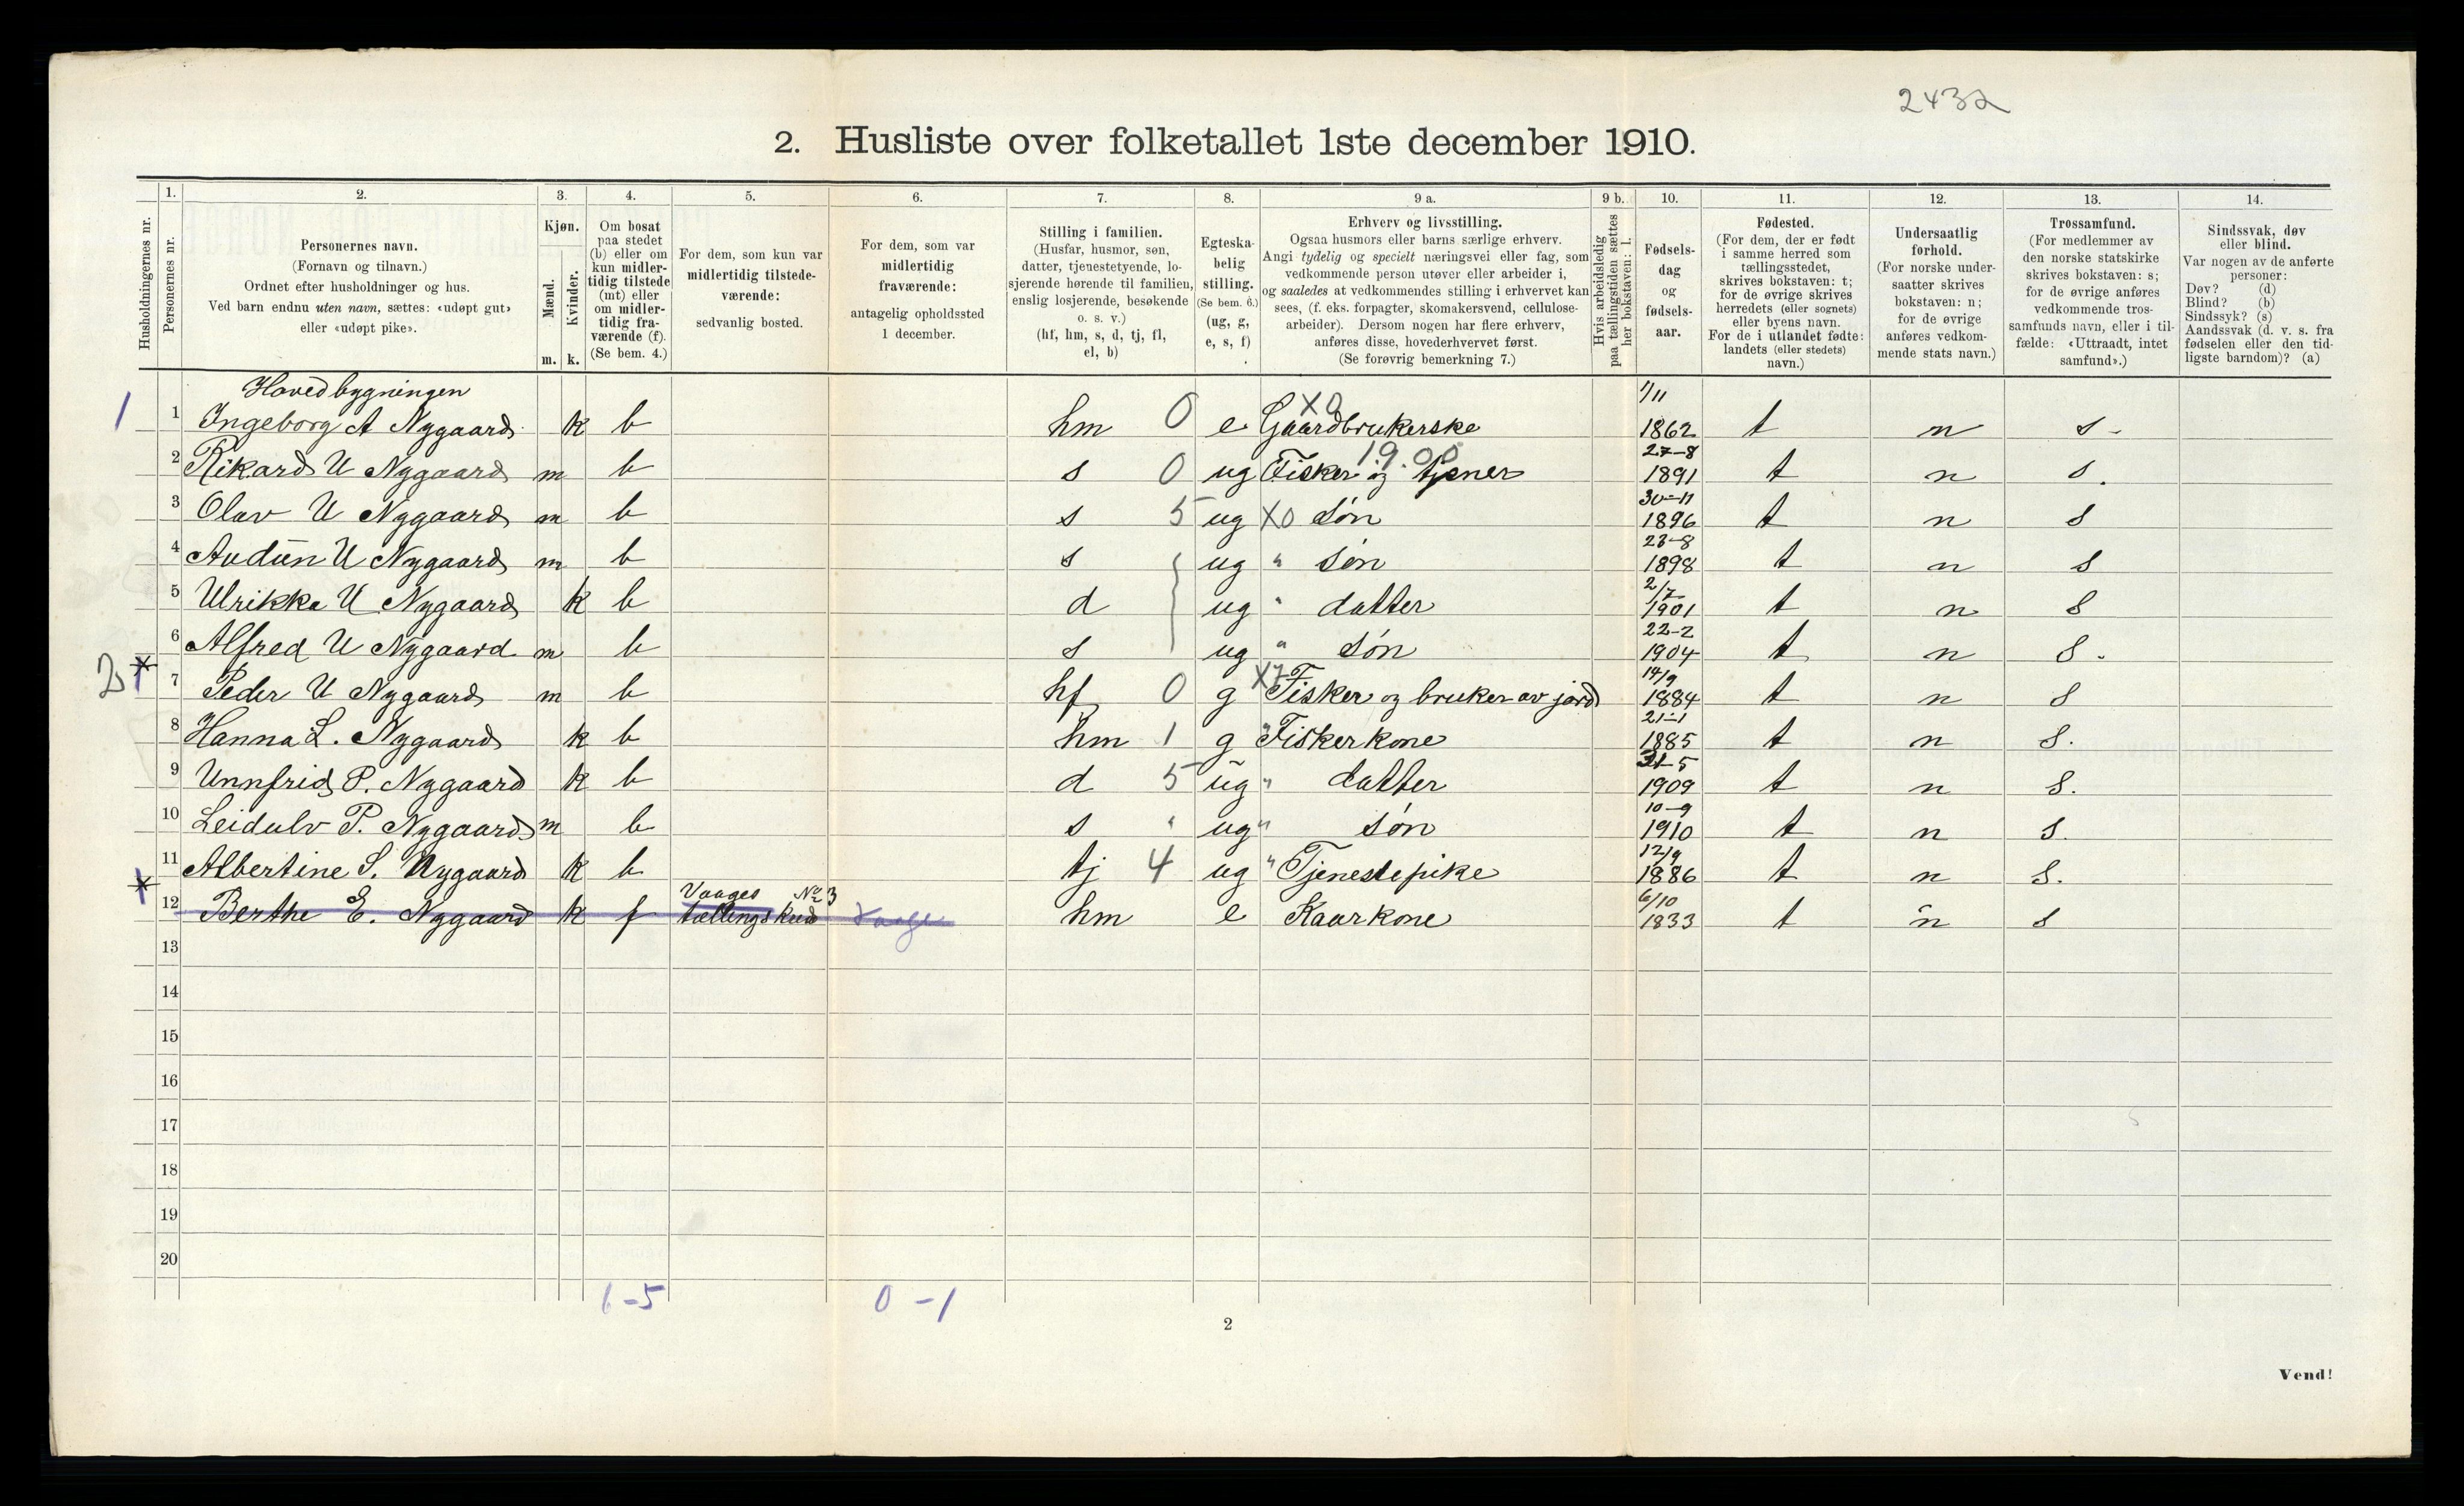 2432
2. Husliste over folketallet 1ste december 1910.
Husholdningernes nr.
1.
Personernes nr.
2.
Personernes navn.
(Fornavn og tilnavn.)
Ordnet efter husholdninger og hus.
Ved barn endnu uten navn, sættes: «udøpt gut»
eller «udøpt pike».
3.
Kjøn.
Mænd.
Kvinder.
m. k.
4.
Om bosat
paa stedet
(b) eller om
kun midler-
tidig tilstede
(mt) eller
om midler-
tidig fra-
værende (f).
(Se bem. 4.)
5.
For dem, som kun var
midlertidig tilstede-
værende:
sedvanlig bosted.
6.
For dem, som var
midlertidig
fraværende:
antagelig opholdssted
1 december.
7.
Stilling i familien.
(Husfar, husmor, søn,
datter, tjenestetyende, lo-
sjerende hørende til familien,
enslig losjerende, besøkende
o. s. v.)
(hf, hm, s, d, tj, fl,
el, b)
8.
Egteska-
belig
stilling.
(Se bem. 6.)
(ug, g,
e, s, f)
9 a.
Erhverv og livsstilling.
Ogsaa husmors eller barns særlige erhverv.
Angi tydelig og specielt næringsvei eller fag, som
vedkommende person utøver eller arbeider i,
og saaledes at vedkommendes stilling i erhvervet kan
sees, (f. eks. forpagter, skomakersvend, cellulose-
arbeider). Dersom nogen har flere erhverv,
anføres disse, hovederhvervet først.
(Se forøvrig bemerkning 7.)
9 b.
Hvis arbeidsledig
paa tællingstiden sættes
her bokstaven: l.
10.
Fødsels-
dag
og
fødsels-
aar.
11.
Fødested.
(For dem, der er født
i samme herred som
tællingsstedet,
skrives bokstaven: t;
for de øvrige skrives
herredets (eller sognets)
eller byens navn.
For de i utlandet fødte:
landets (eller stedets)
navn.)
12.
Undersaatlig
forhold.
(For norske under-
saatter skrives
bokstaven: n;
for de øvrige
anføres vedkom-
mende stats navn.)
13.
Trossamfund.
(For medlemmer av
den norske statskirke
skrives bokstaven: s;
for de øvrige anføres
vedkommende tros-
samfunds navn, eller i til-
fælde: «Uttraadt, intet
samfund».)
14.
Sindssvak, døv
eller blind.
Var nogen av de anførte
personer:
Døv? (d)
Blind? (b)
Sindssyk? (s)
Aandssvak (d. v. s. fra
fødselen eller den tid-
ligste barndom)? (a)
Hovedbygningen
1 1 Ingeborg A Nygaard k b hm 0 e X0 Gaardbrukerske 1/11 1862 t n s -
2 Rikard U Nygaard m b s 0 ug Fisker og tjener 19.00 27-8 1891 t n s.
3 Olav U Nygaard m b s 5 ug X0 søn 30-11 1896 t n s
4 Audun U Nygaard m b s ug " søn 23-8 1898 t n s
5 Ulrikka U Nygaard k b d ug " datter 2/7 1901 t n s
6 Alfred U Nygaard m b s ug " søn 22-2 1904 t n s -
2 * 7 Peder U Nygaard m b hf 0 g X7 Fisker og bruker av jord 14/9 1884 t n s
8 Hanna L. Nygaard k b hm 1 g " Fiskerkone 21-1 1885 t n s.
9 Unnfrid P. Nygaard k b d 5 ug " datter 31-5 1909 t n s.
10 Leidulv P. Nygaard m b s " ug " søn 10-9 1910 t n s.
11 Albertine S. Nygaard k b tj 4 ug " Tjenestepike 12/9 1886 t n s.
* 12 Berthe E. Nygaard k f Vaages No 3 tællingskred Vaage hm e Kaarkone 6/10 1833 t n s
13
14
15
16
17
18
19
20
6-5 0-1
2
Vend!